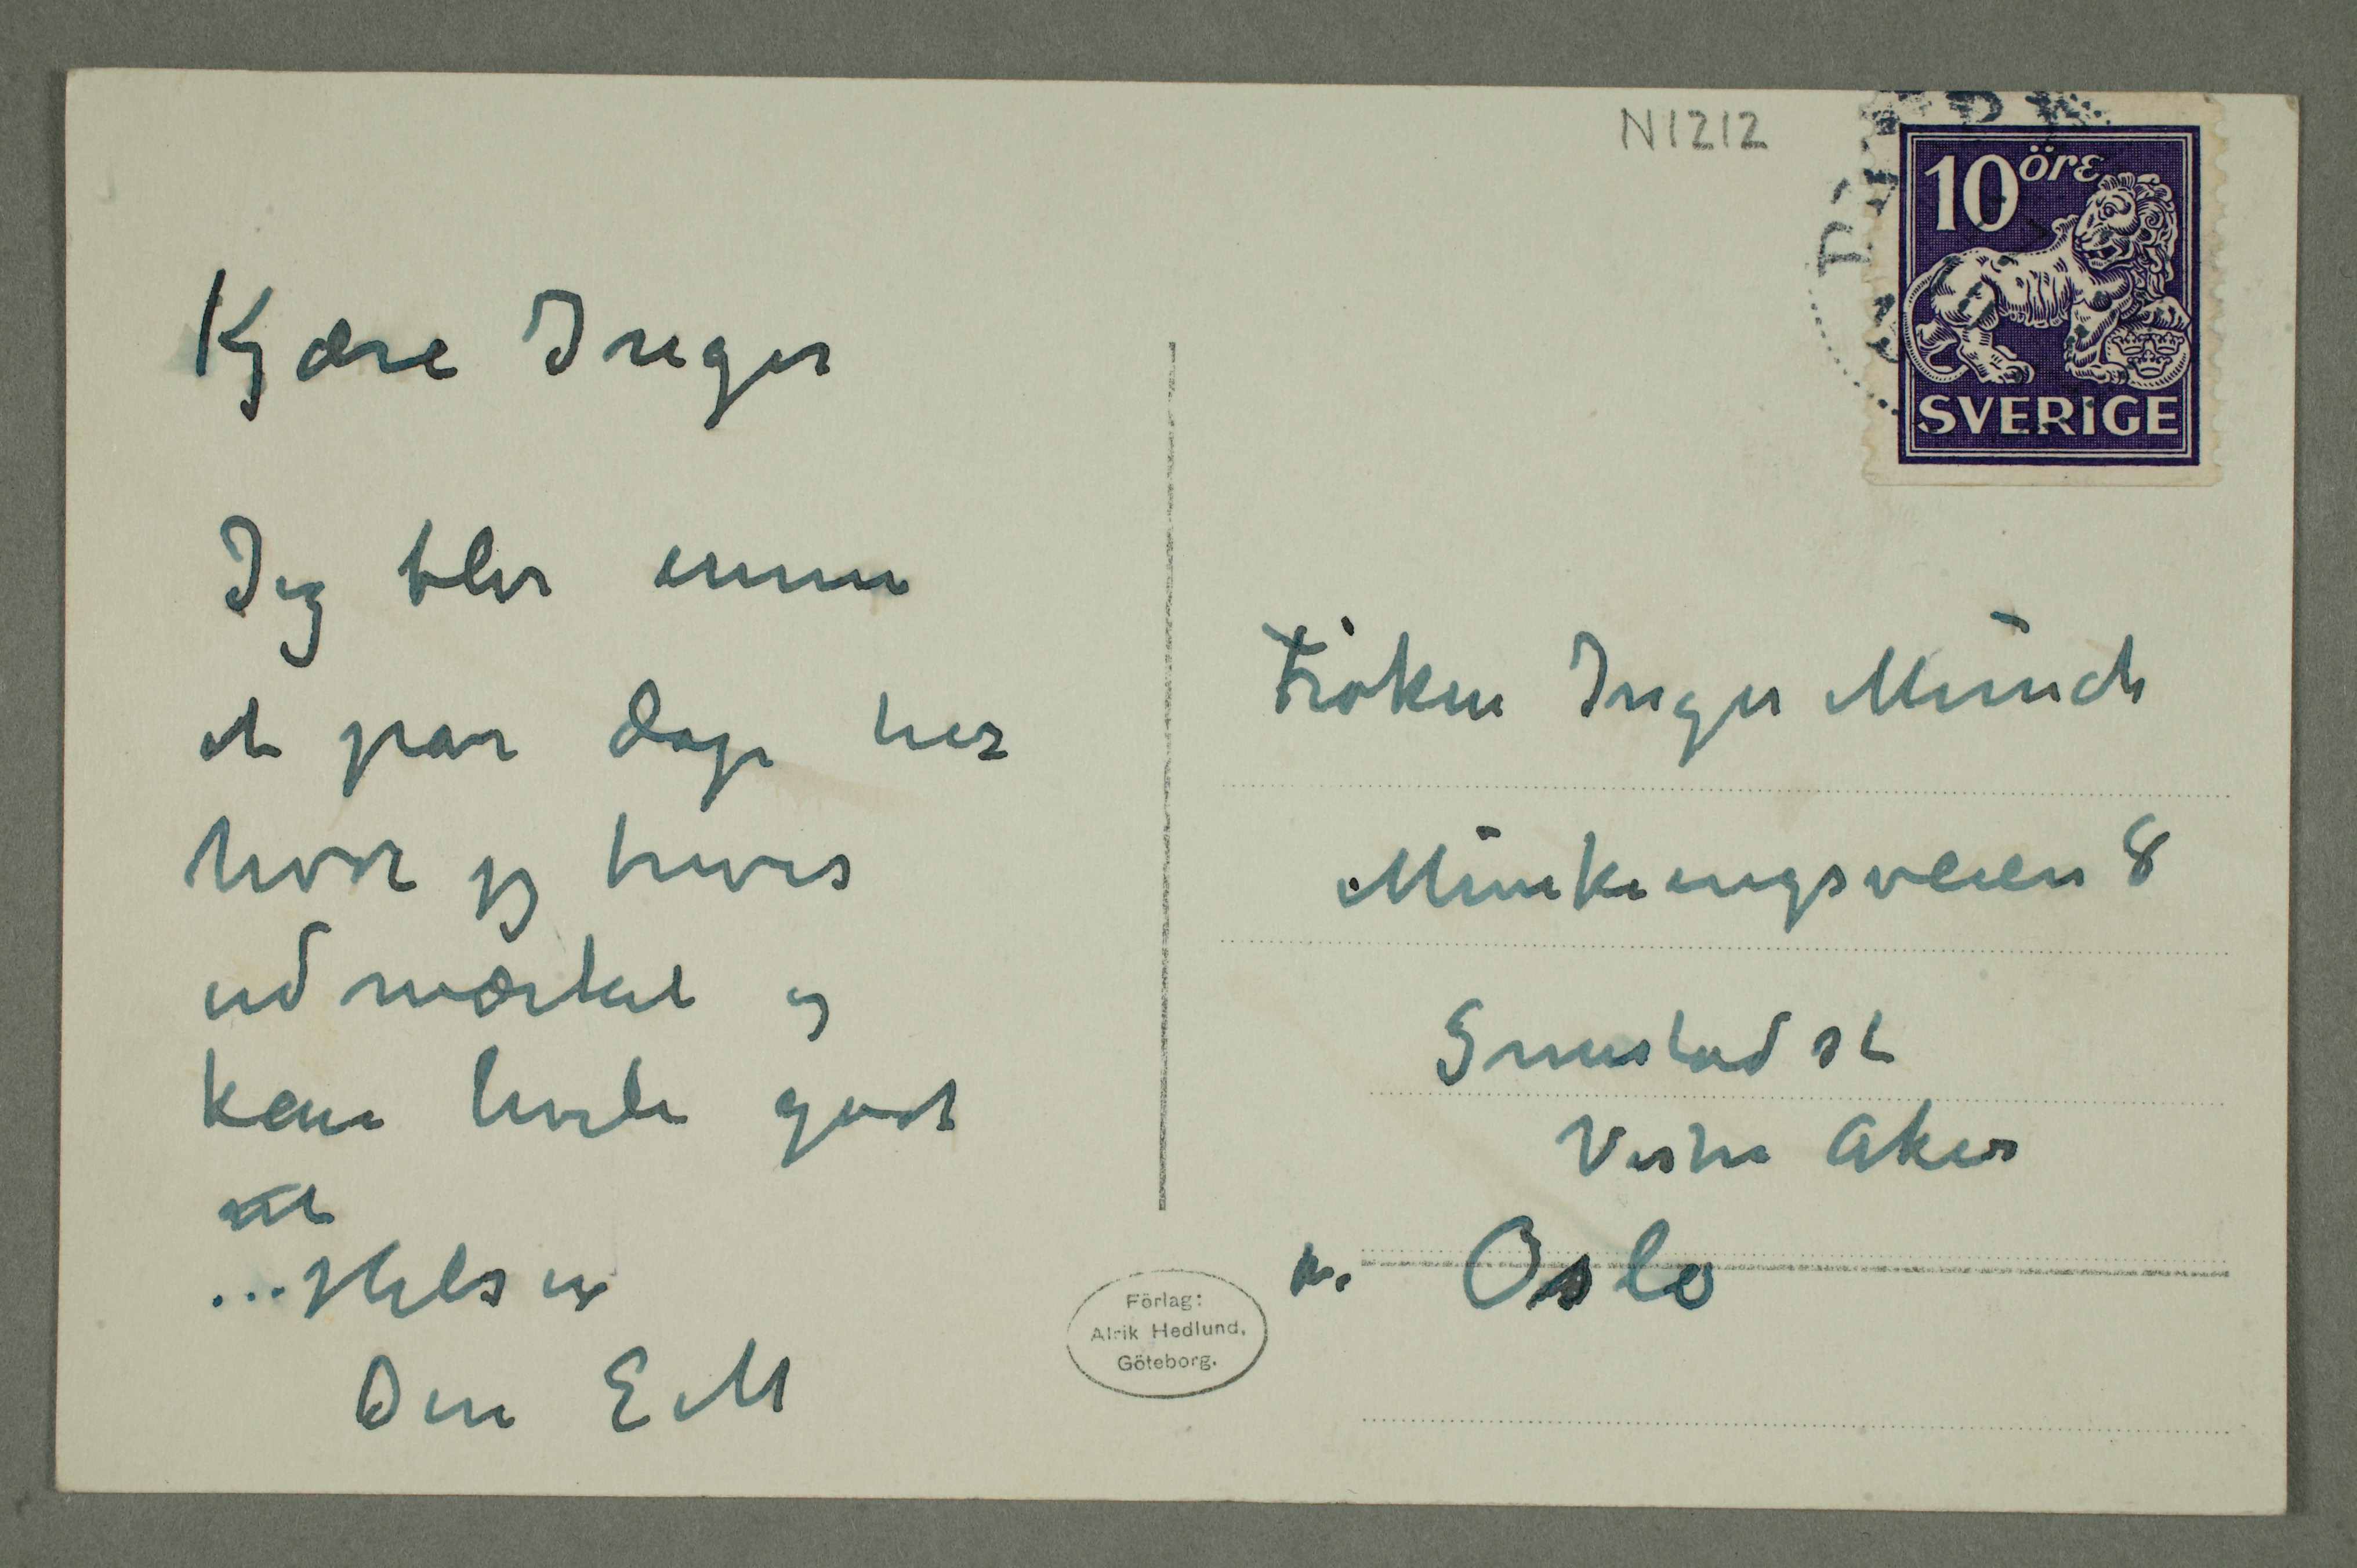 Kjære Inger
Jeg blir ennu
et par dage her
hvor jeg trives
udmærket og
kan hvile godt
ut
... Hilsen
Din E M
N1212
10 öre
SVERIGE
Frøken Inger Munch
Munkengsveien 8
Grimstad st
Vestre Aker
pr. Oslo
Förlag:
Alrik Hedlund,
Göteborg.